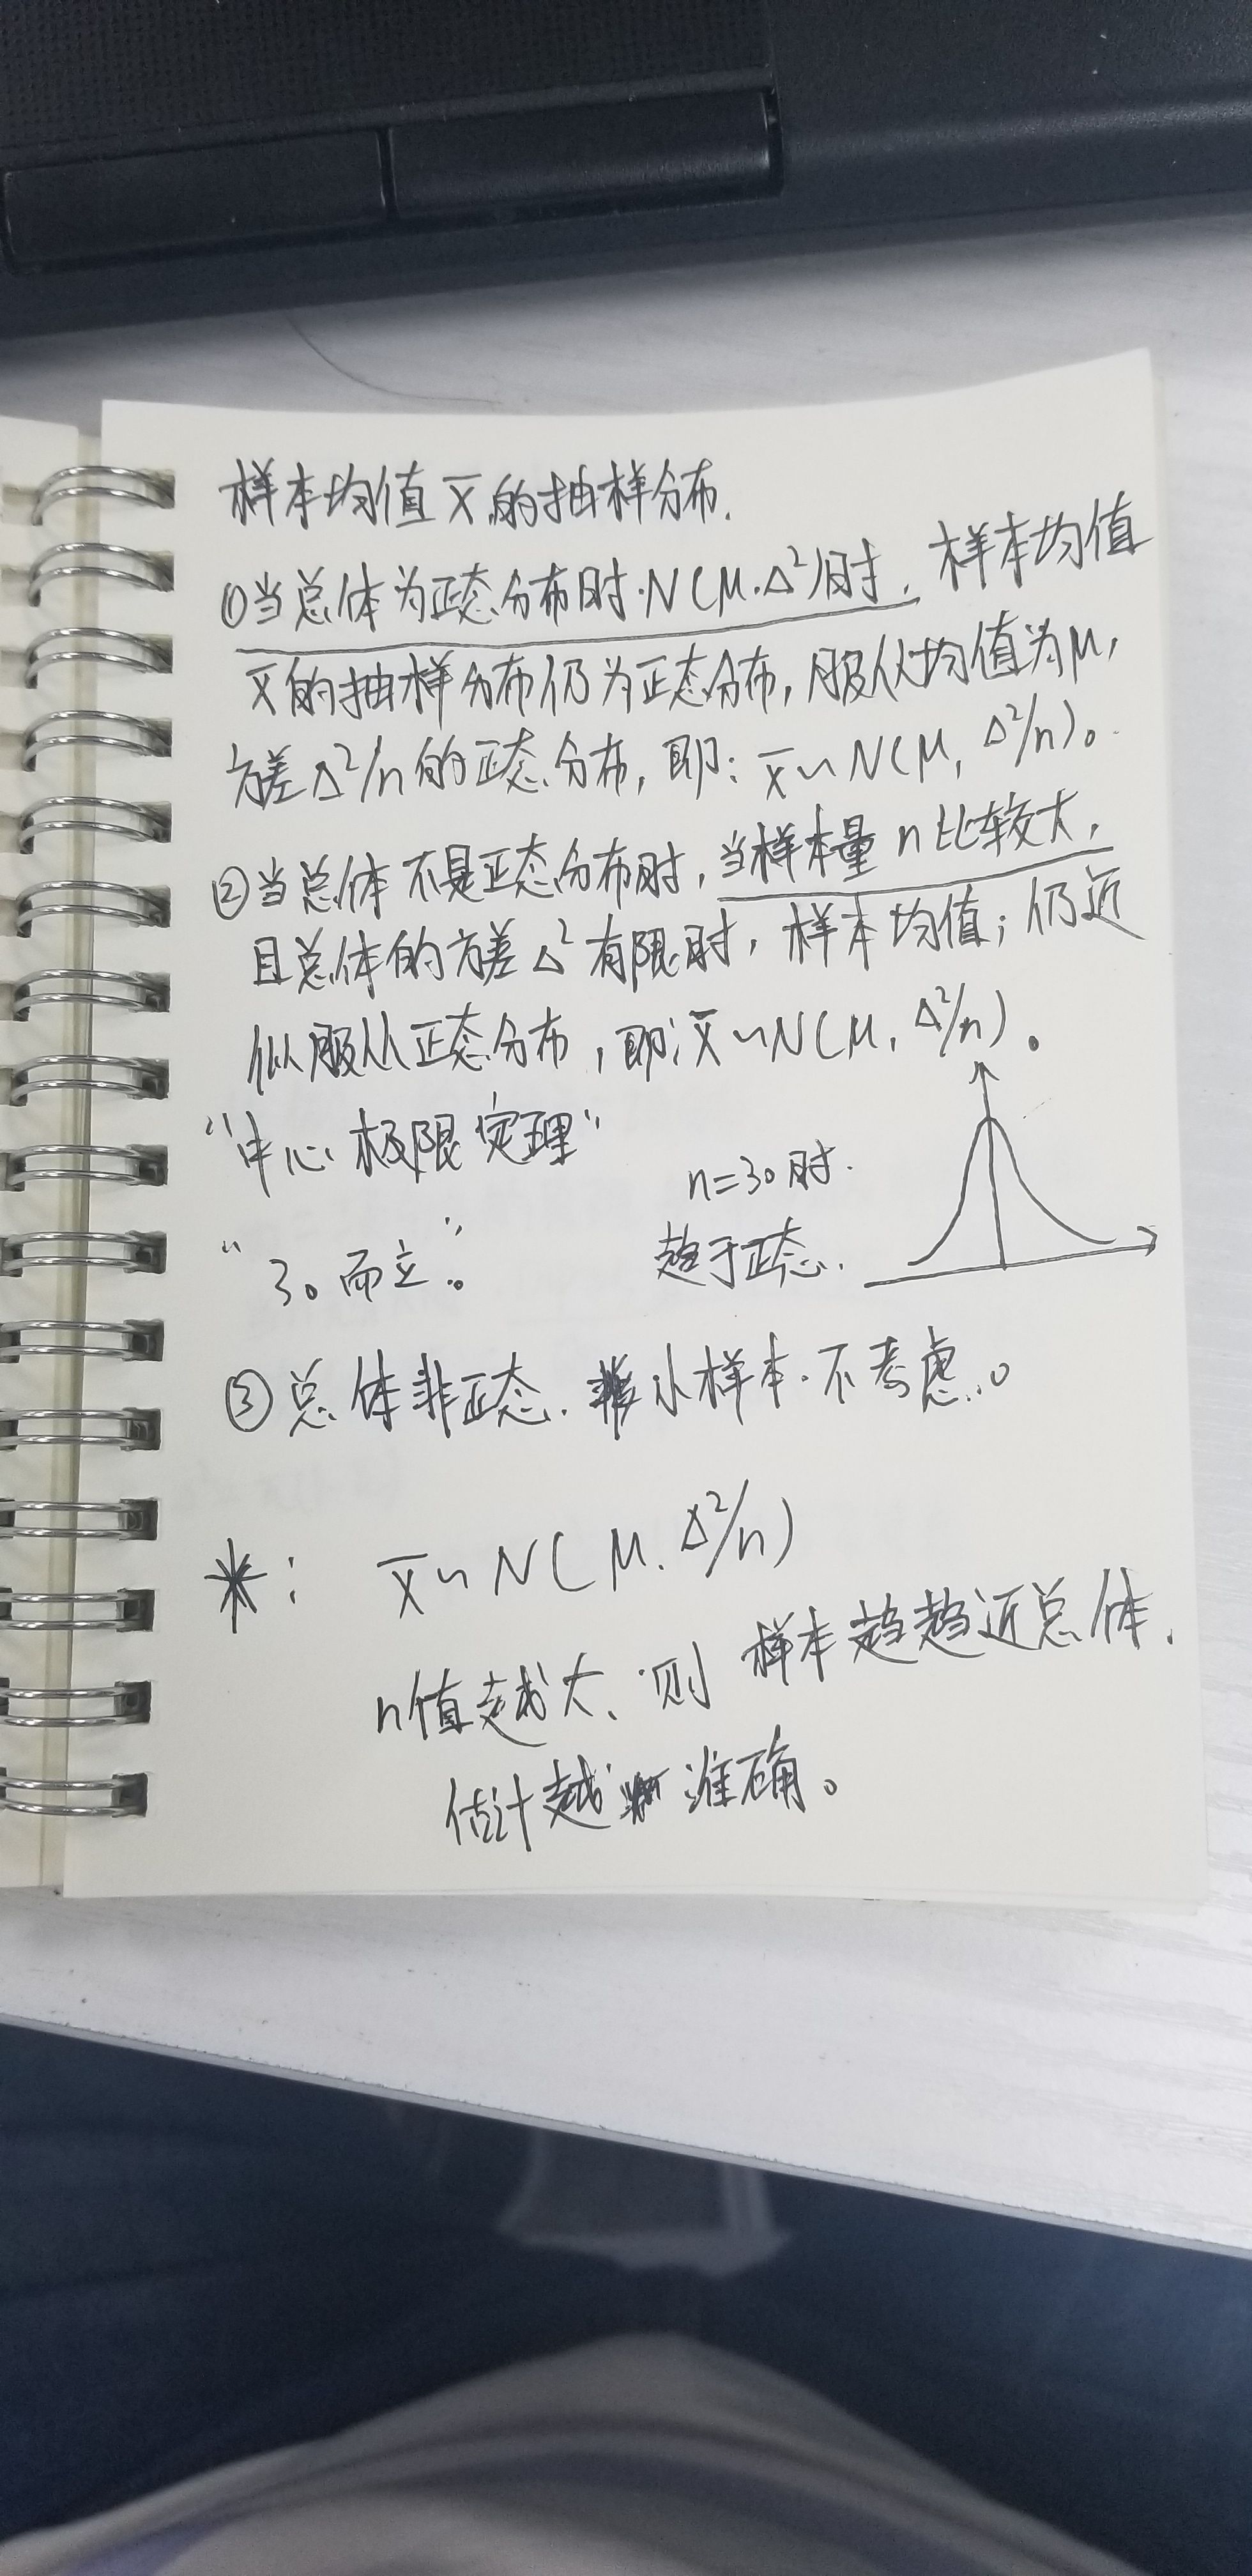 样本均值x̄的抽样分布.
①当总体为正态分布时.N(μ.Δ²)时,样本均值
x̄的抽样分布仍为正态分布,服从均值为μ,
方差Δ²/n的正态分布,即:x̄~N(μ,Δ²/n)。
②当总体不是正态分布时,当样本量n比较大,
且总体的方差Δ²有限时,样本均值;仍近
似服从正态分布,即:x̄~N(μ,Δ²/n)。
“中心极限定理”
n=30时.
“30而立。”
趋于正态.
③总体非正态.小样本.不考虑。
*: x̄~N(μ.Δ²/n)
n值越大、则样本趋趋近总体.
估计越准确。